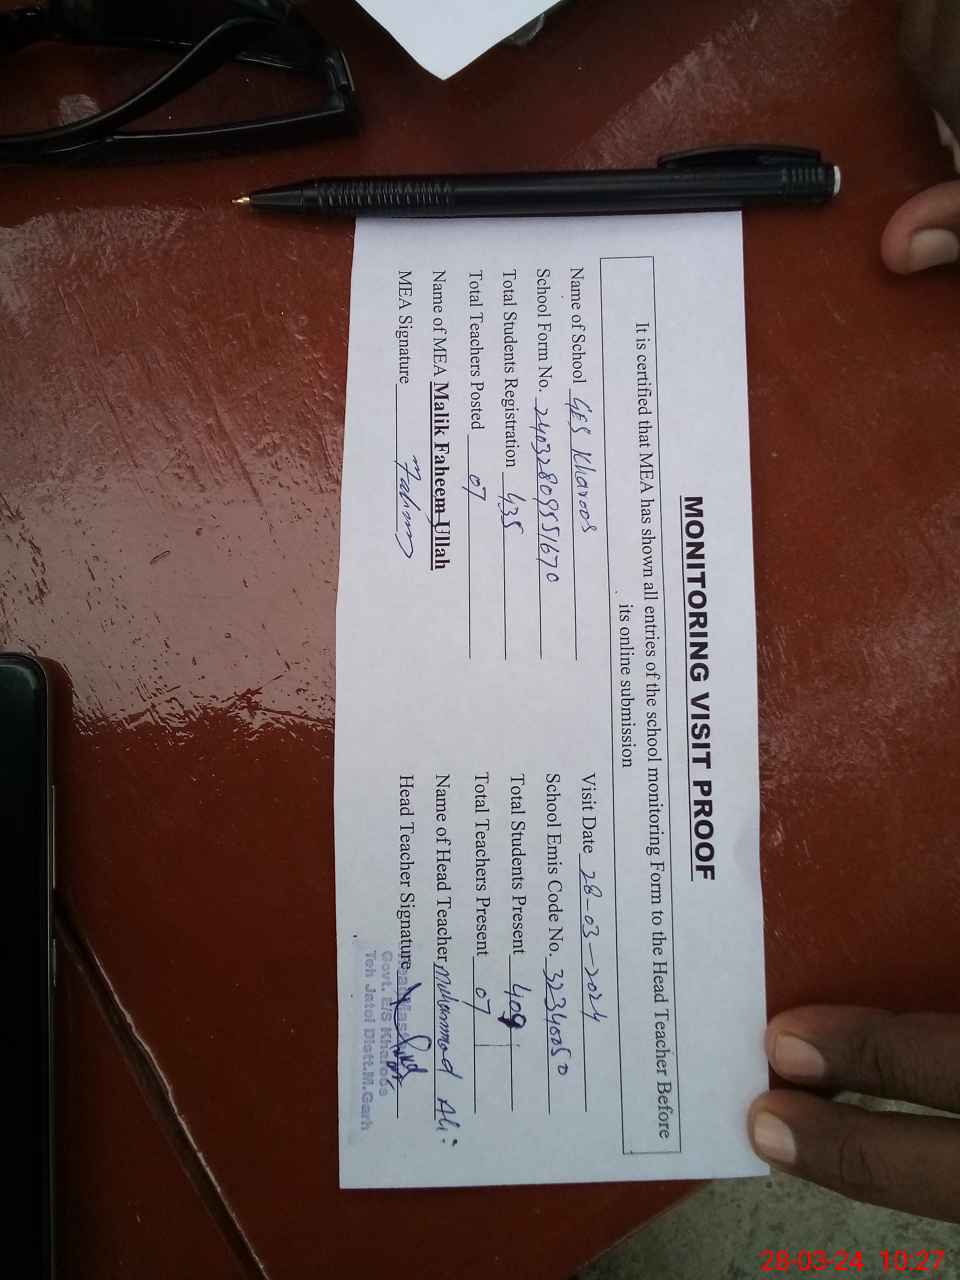 MONITORING VISIT PROOF
It is certified that MEA has shown all entries of the school monitoring Form to the Head Teacher Before
its online submission
Name of School GES Kharoos Visit Date 28-03-2024
School Form No. 24032809551670 School Emis Code No. 32340050
Total Students Registration 435 Total Students Present 409
Total Teachers Posted 07 Total Teachers Present 07
Name of MEA Malik Faheem Ullah Name of Head Teacher Muhammad Ali
MEA Signature Head Teacher Signature
Govt. E/S Kharoos
Teh Jatoi Distt.M.Garh
28-03-24 10:27